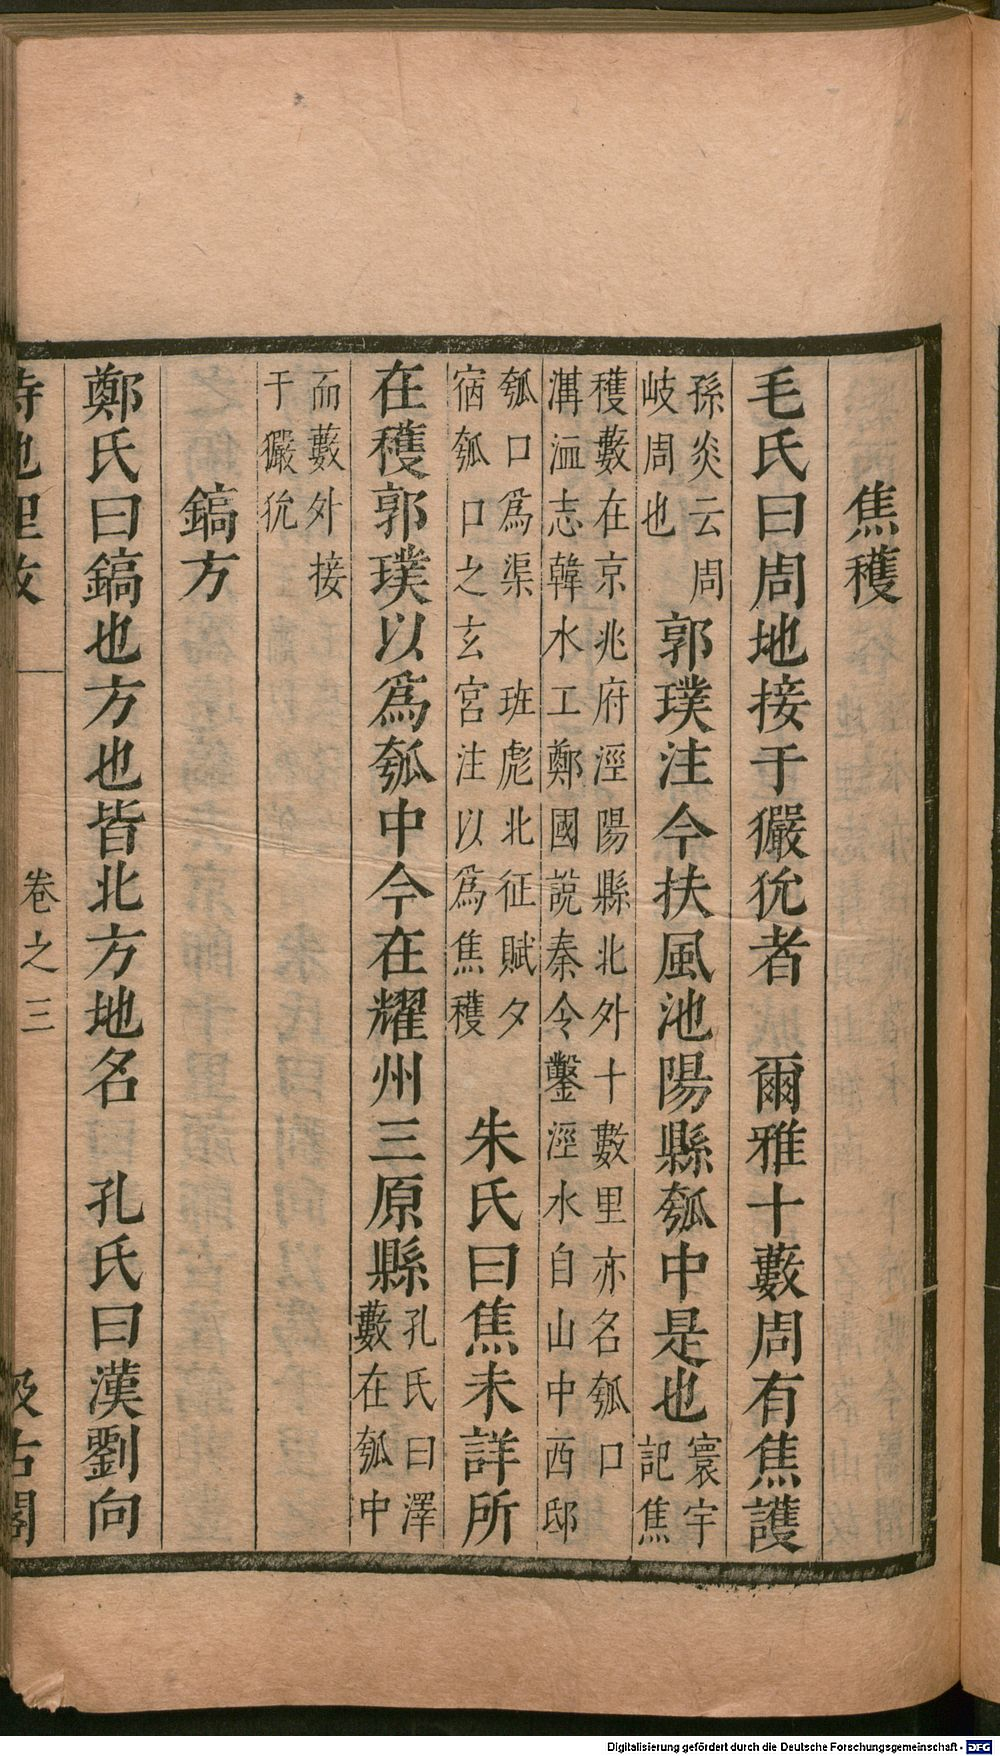 焦穫
毛氏曰周地接于玁狁者　爾雅十藪周有焦護
孫炎云周
岐周也
郭璞注今扶風池陽縣瓠中是也
寰宇
記焦
穫藪在京兆府涇陽縣北外十數里亦名瓠口
溝洫志韓水工鄭國說秦令鑿涇水自山中西邸
瓠口爲渠　班彪北征賦夕
宿瓠口之玄宮注以爲焦穫
朱氏曰焦未詳所
在穫郭璞以爲瓠中今在耀州三原縣
孔氏曰澤
藪在瓠中
而藪外接
于玁狁
鎬方
鄭氏曰鎬也方也皆北方地名　孔氏曰漢劉向
詩地理攷　卷之三　汲古閣
Digitalisierung gefördert durch die Deutsche Forschungsgemeinschaft - DFG